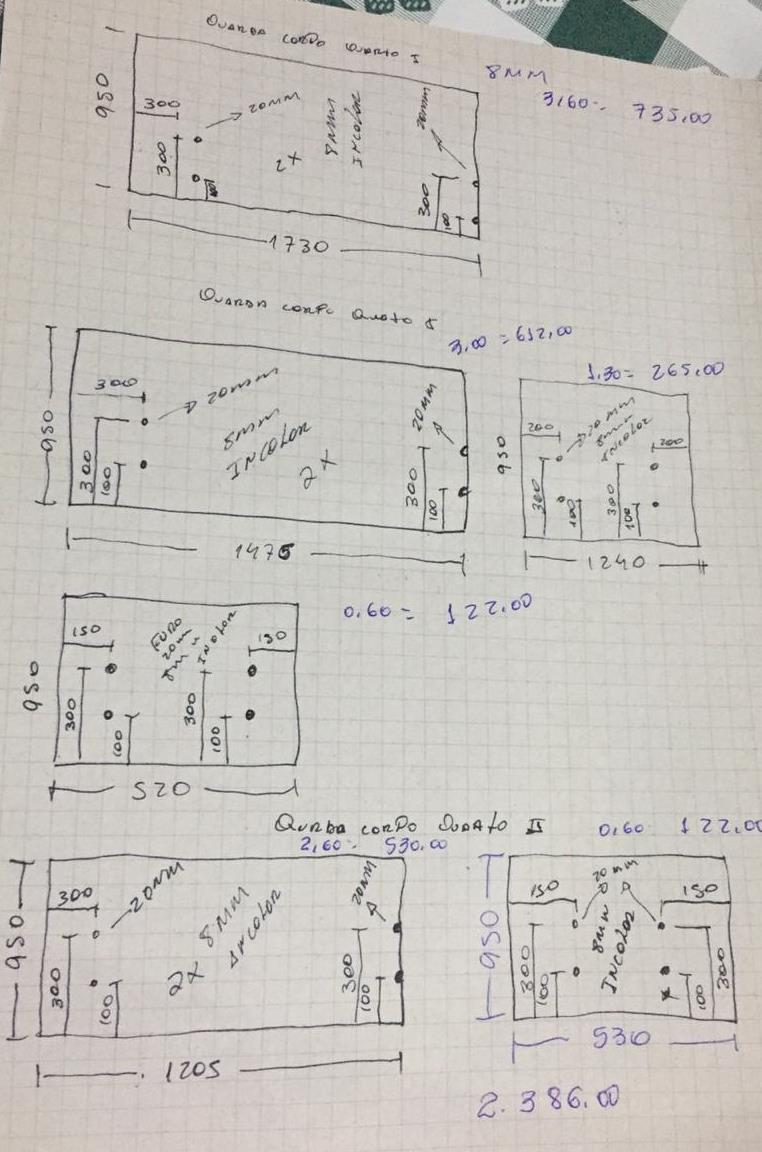 QUARDA CORPO QUARTO I
8MM
3,60 = 735,00
950
300
20MM
8MM
INCOLOR
20MM
300
2X
100
300
100
1730
QUARDA CORPO QUATO I
3,00 = 612,00
950
300
20MM
8MM
INCOLOR
2X
20MM
300
100
300
100
1475
1.30 = 265,00
950
200
20MM
8MM
INCOLOR
200
300
100
300
100
1240
0.60 = 122,00
950
150
FURO
20MM
8MM
INOLOR
150
300
100
300
100
520
QURDA CORPO QUATO II
2,60 = 530,00
950
300
20MM
8MM
INCOLOR
2X
20MM
300
100
300
100
1205
0,60 122,00
950
150
20MM
8MM
INCOLOR
150
300
100
100
300
530
2.386,00